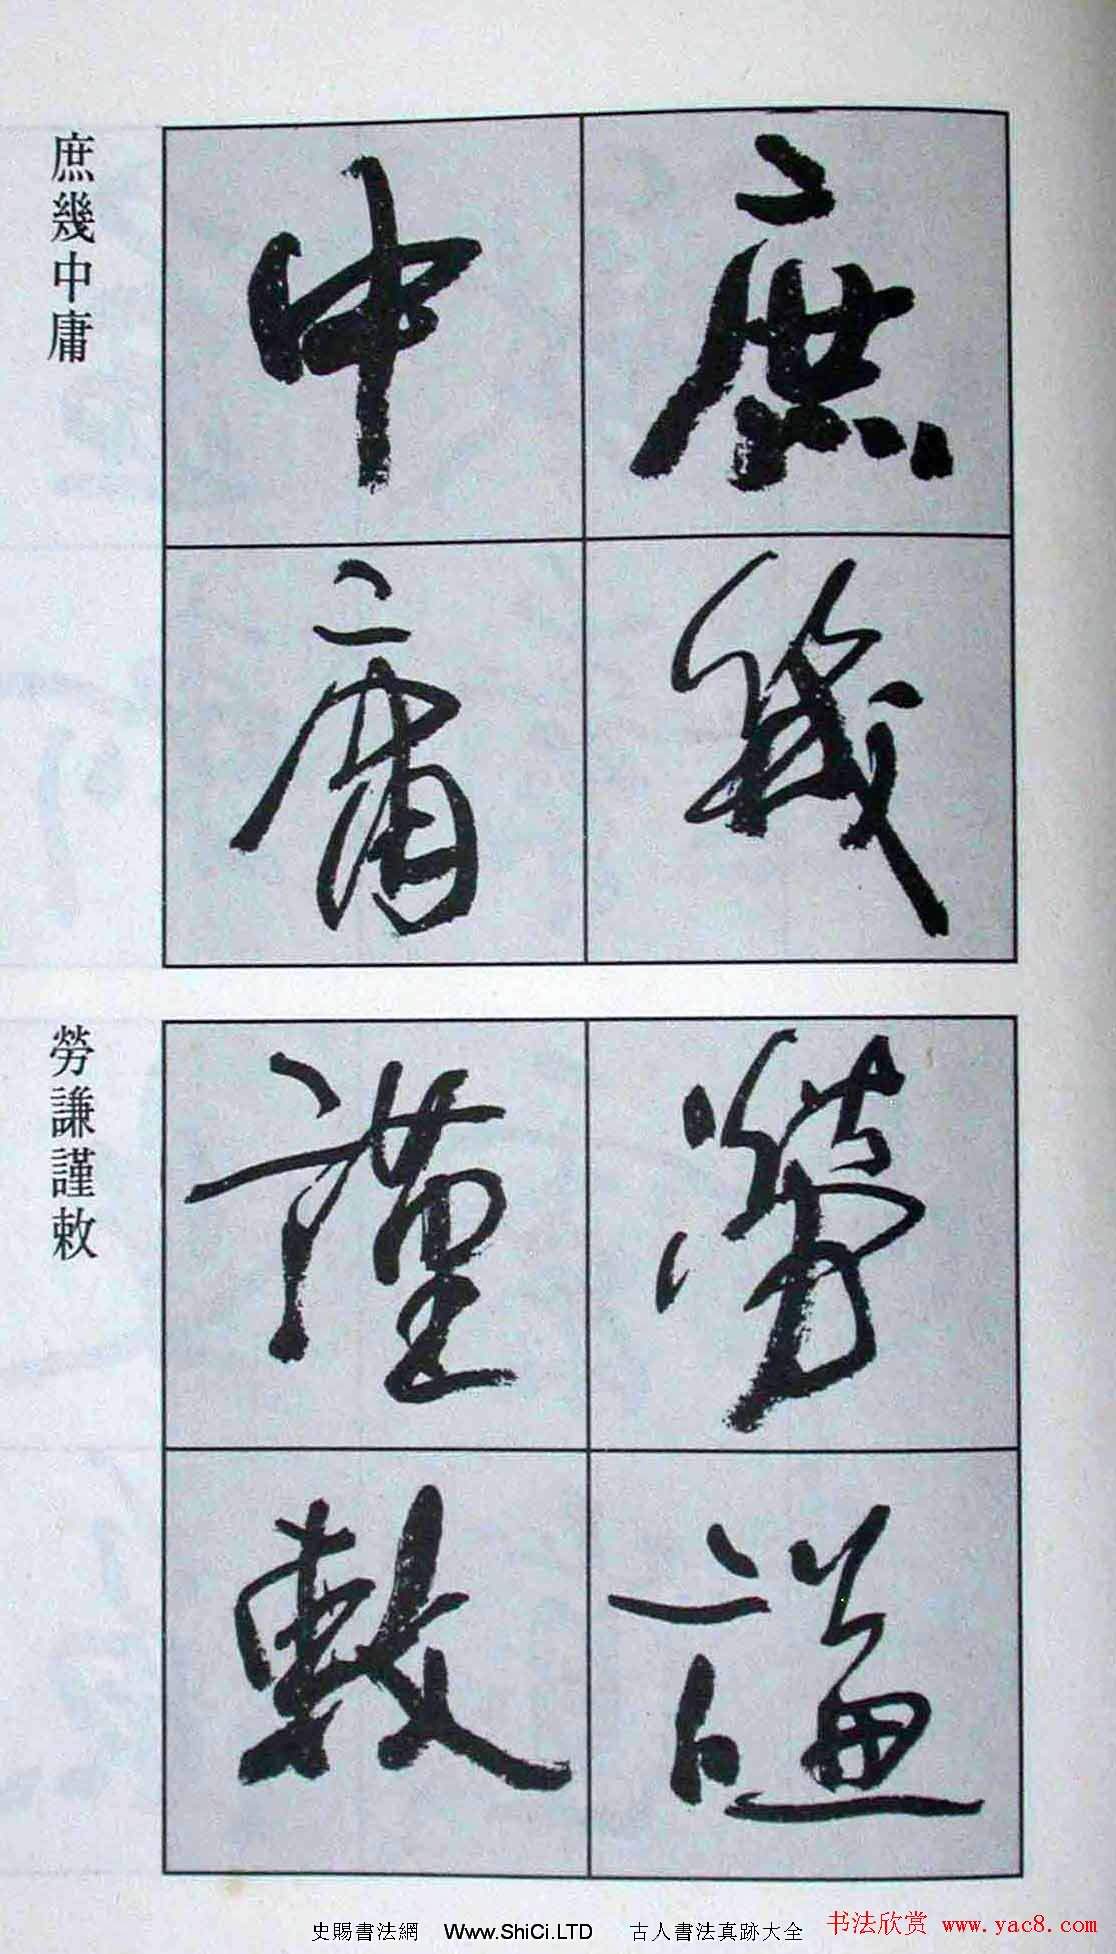 庶幾中庸
庶幾
中庸
勞謙謹敕
勞謙
謹敕
史賜書法網 Www.ShiCi.LTD 古人書法真跡大全
书法欣赏 www.yac8.com